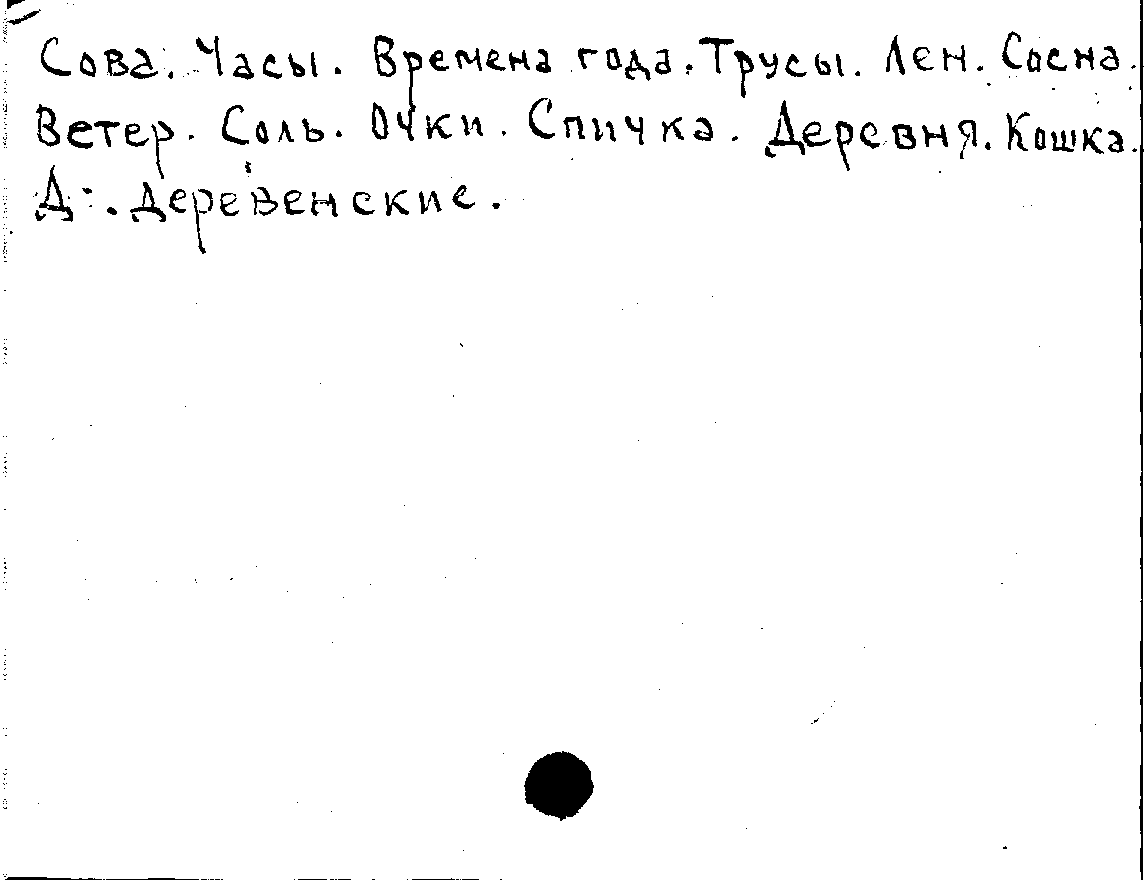 Сова. Часы. Времена года. Трусы. Лен. Сосна.
Ветер. Соль. Очки. Спичка. Деревня. Кошка.
Д:. Деревенские.